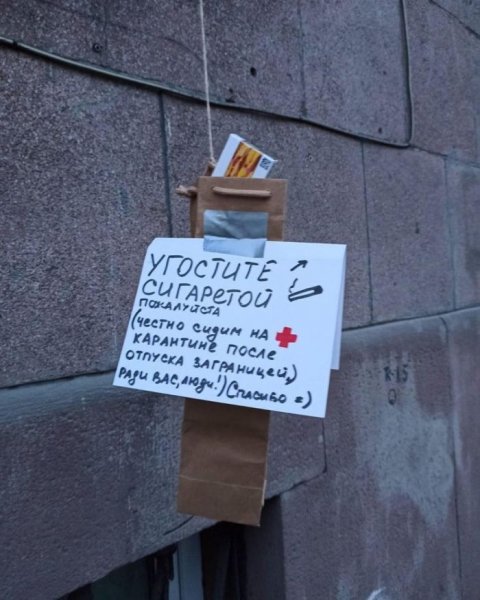 УГОСТИТЕ
СИГАРЕТОЙ
ПОЖАЛУЙСТА
(ЧЕСТНО СИДИМ НА
КАРАНТИНЕ ПОСЛЕ
ОТПУСКА ЗАГРАНИЦЕЙ,)
РАДИ ВАС, ЛЮДИ!) (СПАСИБО =)
К-15